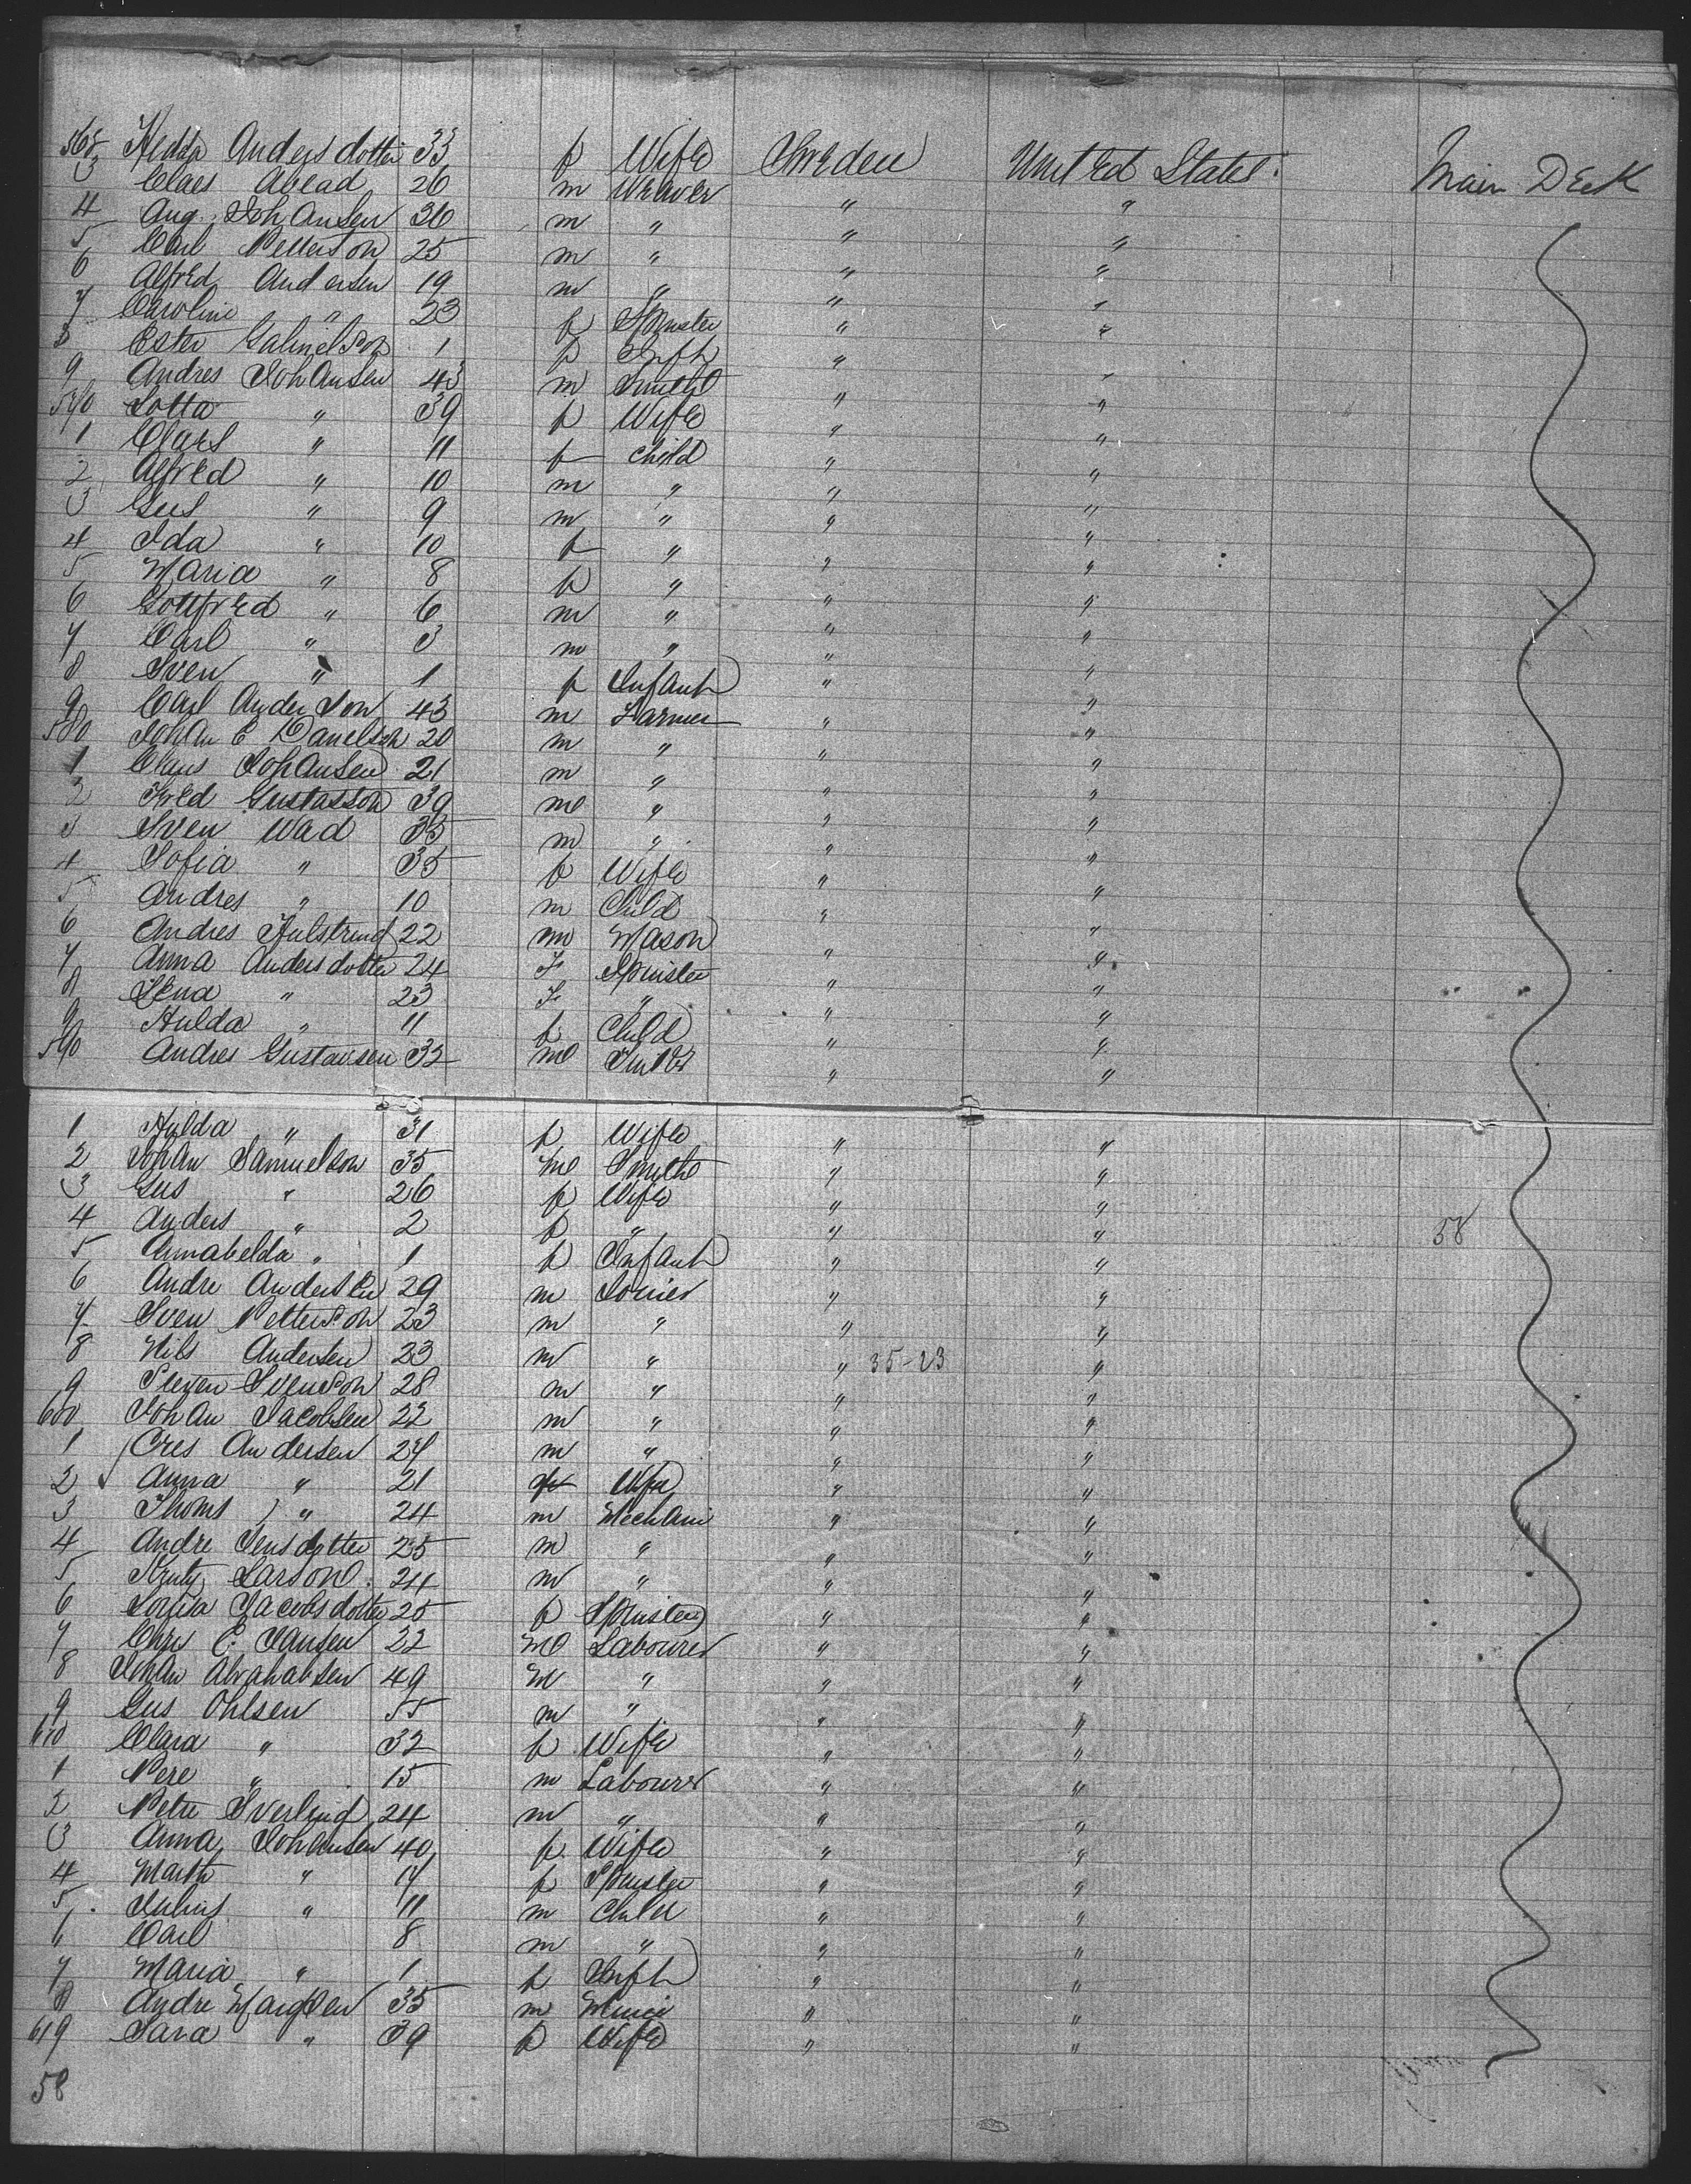 562 Hedda Andersdotter 33 f Wife Sweden United States. Main Deck
3 Claes Abead 26 m Weaver " "
4 Aug. Johansen 36 m " " "
5 Carl Petterson 25 m " " "
6 Alfred Andersen 19 m " " "
7 Caroline " 23 f Spinster " "
8 Ester Gabrielson 1 f Inft " "
9 Andres Johansen 43 m Smith " "
570 Lotta " 39 f Wife " "
1 Clars " 11 f Child " "
2 Alfred " 10 m " " "
3 Gus " 9 m " " "
4 Ida " 10 f " " "
5 Maria " 8 f " " "
6 Gottfred " 6 m " " "
7 Carl " 3 m " " "
8 Sven " 1 f Infant " "
9 Carl Anderson 43 m Farmer " "
580 Johan E Danelson 20 m " " "
1 Claus Johansen 21 m " " "
2 Fred Gustasson 39 m " " "
3 Sven Wad 35 m " " "
4 Sofia " 35 f Wife " "
5 Andres " 10 m Child " "
6 Andres Hulstrund 22 m Mason " "
7 Anna Andersdotter 24 F Spinster " "
8 Lena " 23 F " " "
9 Hulda " 11 f Child " "
590 Andres Gustavsen 32 m " "
1 Hulda " 31 f Wife " "
2 Johan Samuelson 35 m Smith " "
3 Gus " 26 f Wife " "
4 Anders " 2 f " " " 58
5 Annabelda " 1 f Infant " "
6 Andre Andersen 29 m Joiner " "
7 Sven Petterson 23 m " " "
8 Nils Andersen 23 m " " 35-23 "
9 Steven Svenson 28 m " " "
600 Johan Jacobsen 22 m " " "
1 Cres Andersen 27 m " " "
2 Anna " 21 f Wife " "
3 Thoms " 24 m Mechani " "
4 Andre Jensdotter 25 m " " "
5 Larson 24 m " " "
6 Louisa Jacobsdotter 25 f Spinster " "
7 Chrs C. Jansen 22 m Labourer " "
8 Johan Abrahabsen 49 m " " "
9 Gus Ohlsen 55 m " " "
610 Clara " 32 f Wife " "
1 Pere " 15 m Labourer " "
2 Peter Sverlind 24 m " " "
3 Anna Johansen 40 f Wife " "
4 Marth " 17 f Spinster " "
5 Julius " 11 m Child " "
6 Carl 8 m " " "
7 Maria " 1 f Inft " "
8 Andre 35 m " "
619 Sara " 39 f Wife " "
58